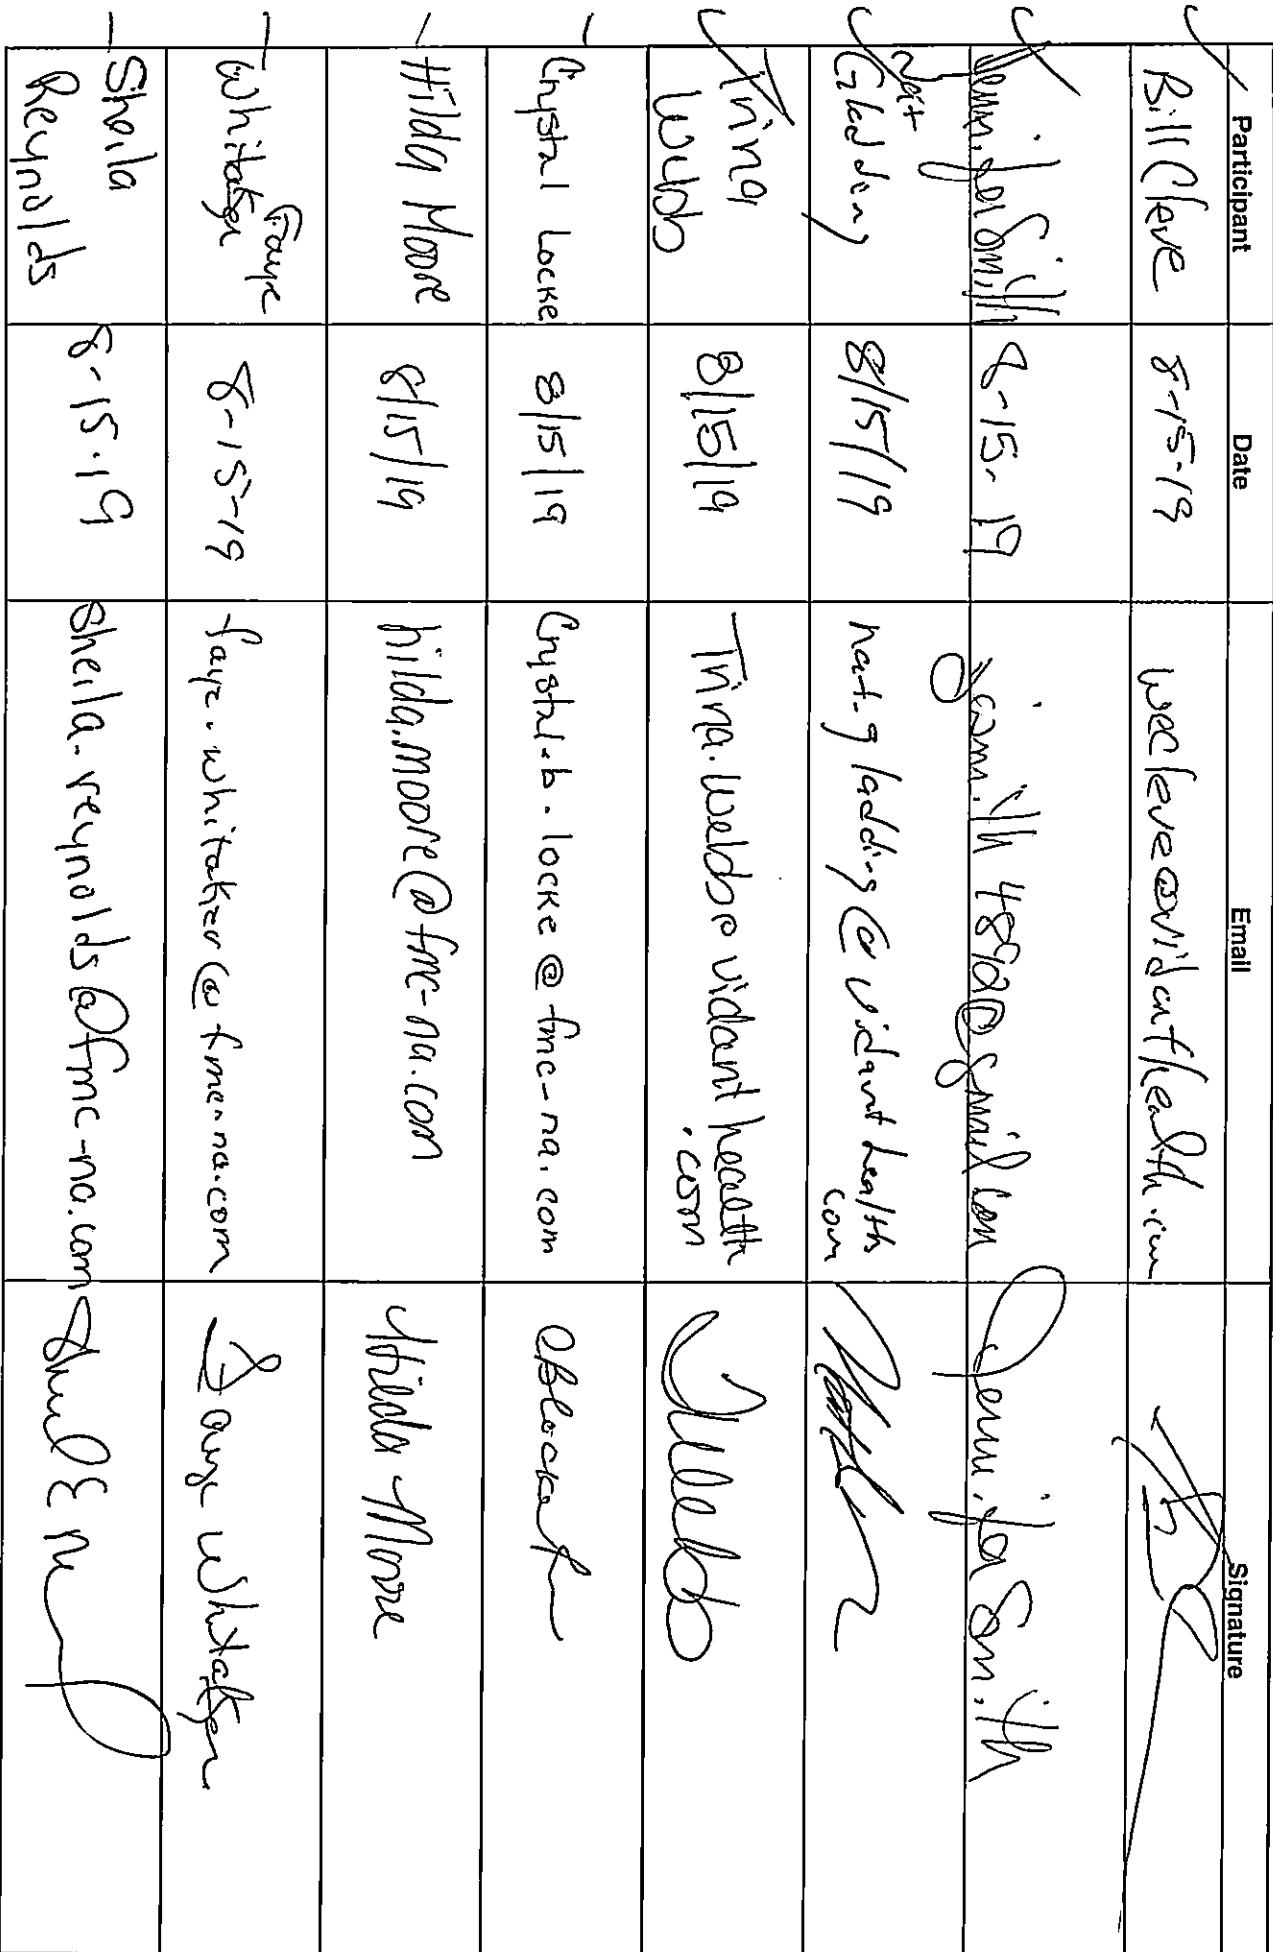 Participant Date Email Signature
Bill Cleve 8-15-19 wecleve@vidanthealth.com
Jennifer Smith 8-15-19 jsmith4892@gmail.com Jennifer Smith
Nat
Gladding 8/15/19 nat.gladding@vidanthealth
com
Trina
Webb 8/15/19 Trina.webb@vidanthealth
.com TWebb
Crystal Locke 8/15/19 Crystal.b.locke@fmc-na.com
Hilda Moore 8/15/19 hilda.moore@fmc-na.com Hilda Moore
Faye
Whitaker 8-15-19 faye.whitaker@fmc-na.com Faye Whitaker
Sheila
Reynolds 8-15-19 sheila.reynolds@fmc-na.com